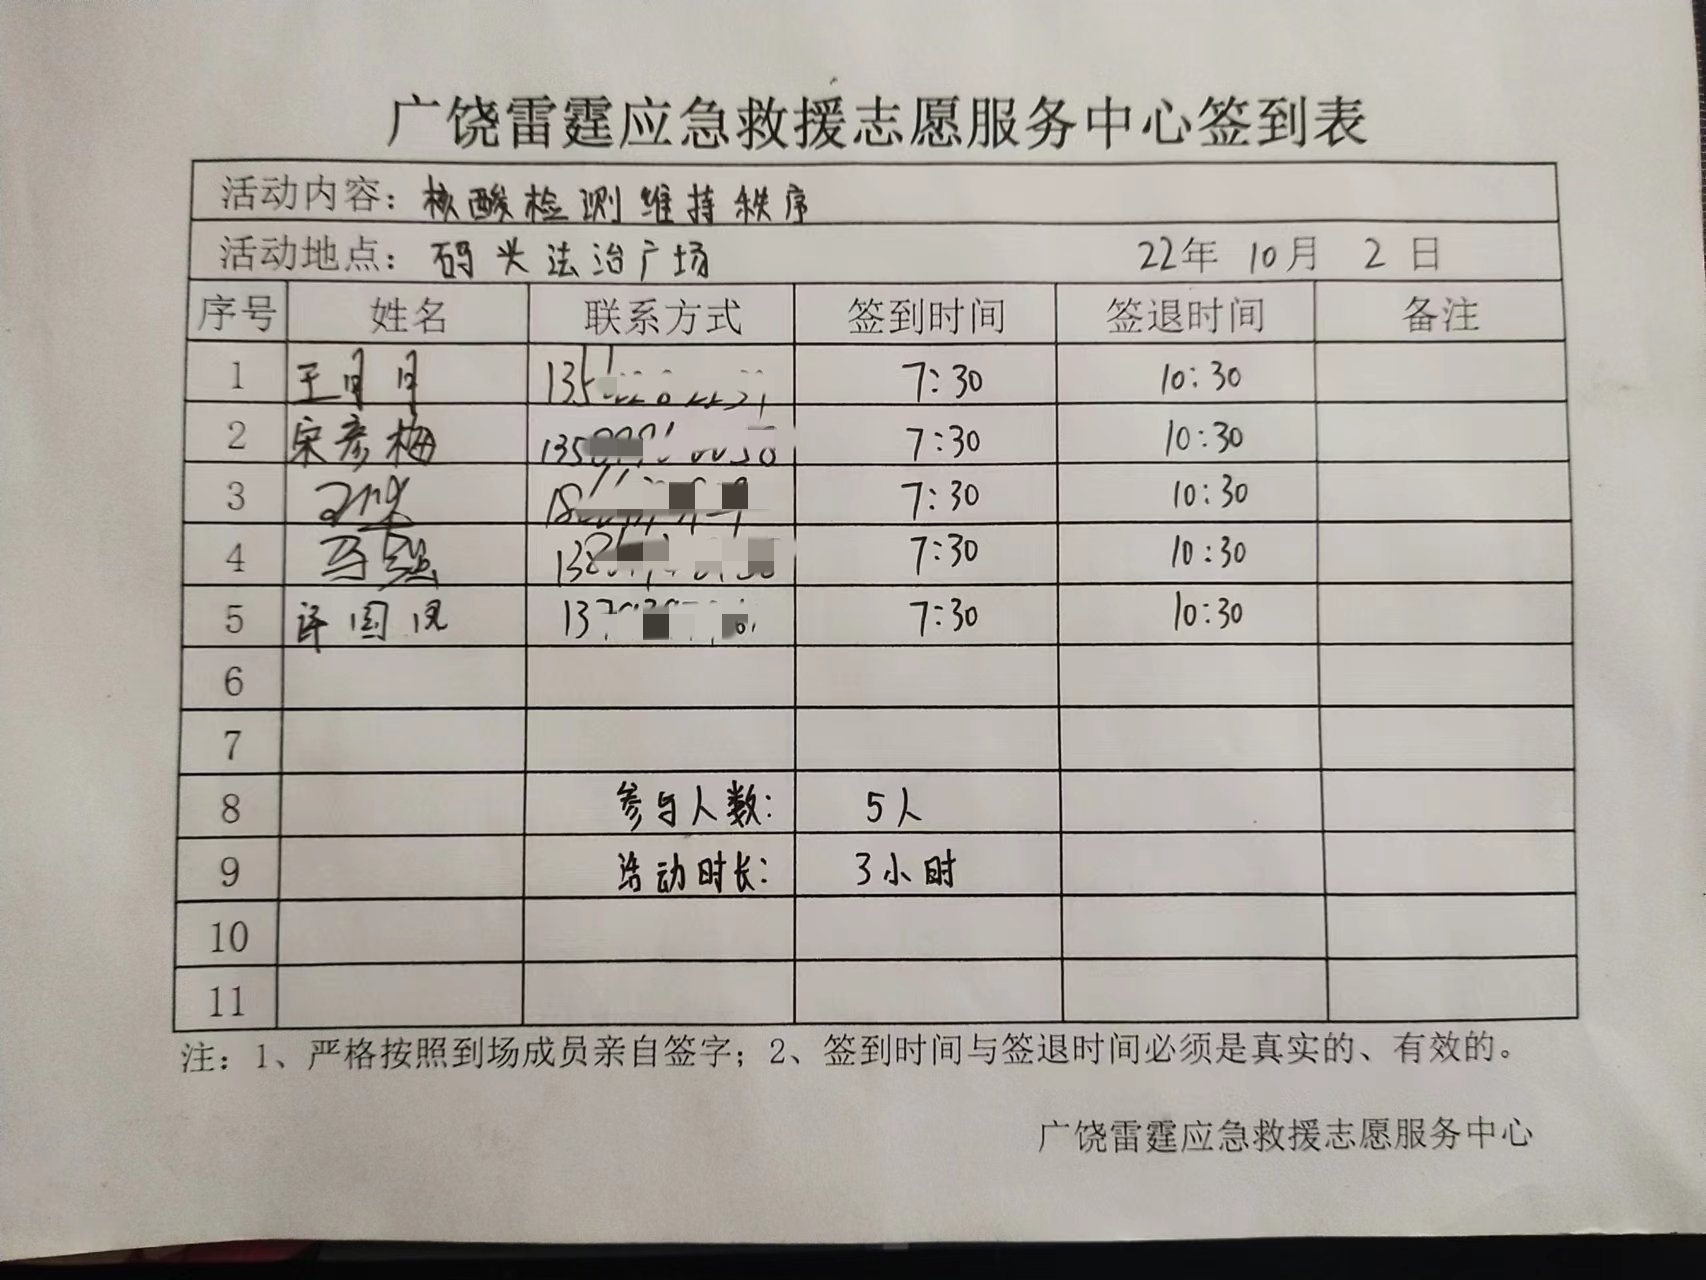 广饶雷霆应急救援志愿服务中心签到表
活动内容：核酸检测维持秩序
活动地点：码头法治广场 22年 10月 2日
序号 姓名 联系方式 签到时间 签退时间 备注
1 王月月 135 7:30 10:30
2 宋彦梅 135 7:30 10:30
3 18 7:30 10:30
4 马 138 7:30 10:30
5 许国 137 7:30 10:30
6
7
8 参与人数： 5人
9 活动时长： 3小时
10
11
注：1、严格按照到场成员亲自签字；2、签到时间与签退时间必须是真实的、有效的。
广饶雷霆应急救援志愿服务中心